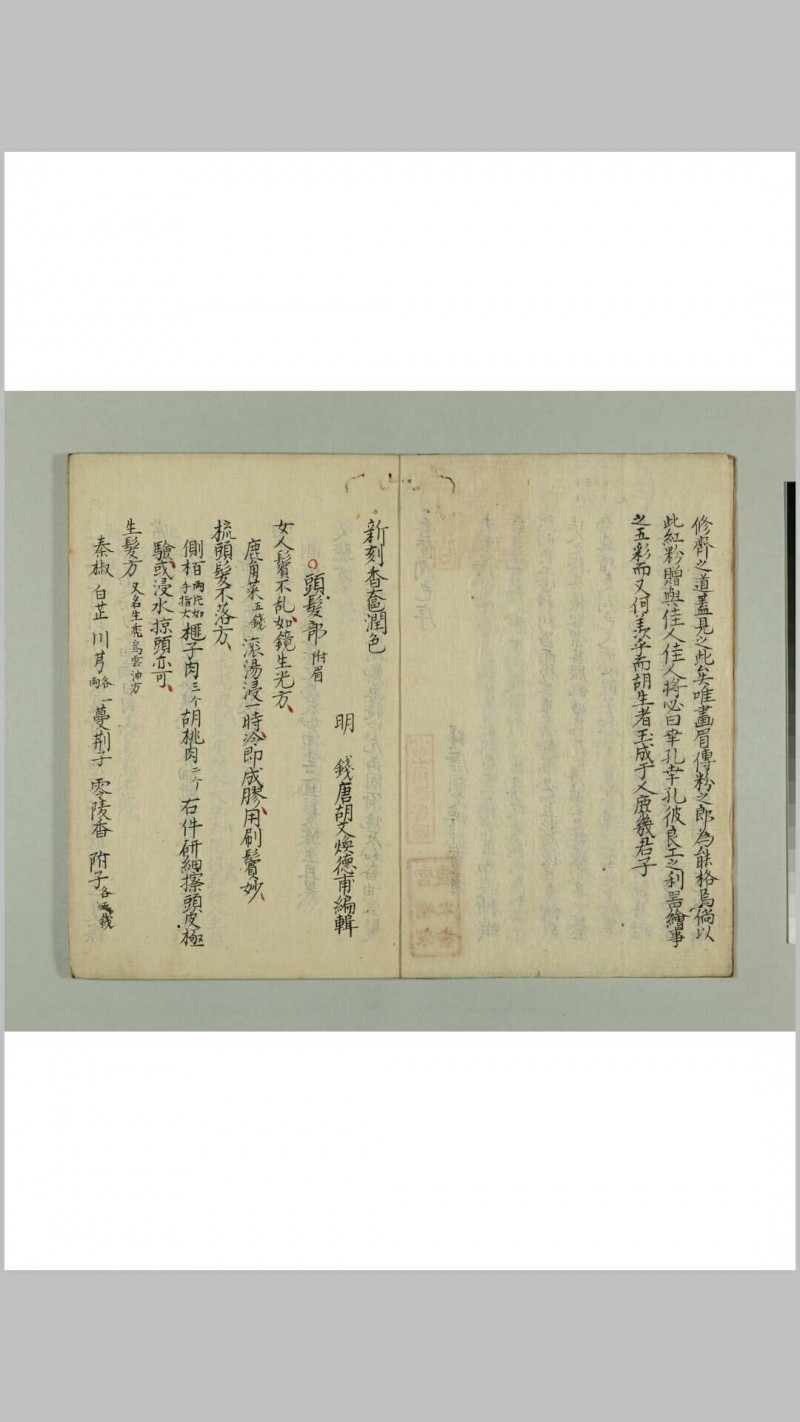 修齊之道蓋見之此矣唯畫眉傅粉之郎為能格焉倘以
此紅粉贈與佳人佳人將必曰幸孔幸孔彼良工之利噐繪事
之五彩而又何羨乎而胡生者玉成于人庶幾君子
新刻香奩潤色
明 錢唐胡文煥德甫編輯
頭髮部 附眉
女人鬢不乱如鏡生光方
鹿角菜五錢 滾湯浸一時冷即成膠用刷鬢妙
梳頭髮不落方
側栢兩片如手指大 榧子肉三个 胡桃肉二个 右件研細擦頭皮極
驗或浸水掠頭亦可
生髮方 又名生禿烏雲油方
秦椒 白芷 川芎各一兩 蔓荆子 零陵香 附子各五錢